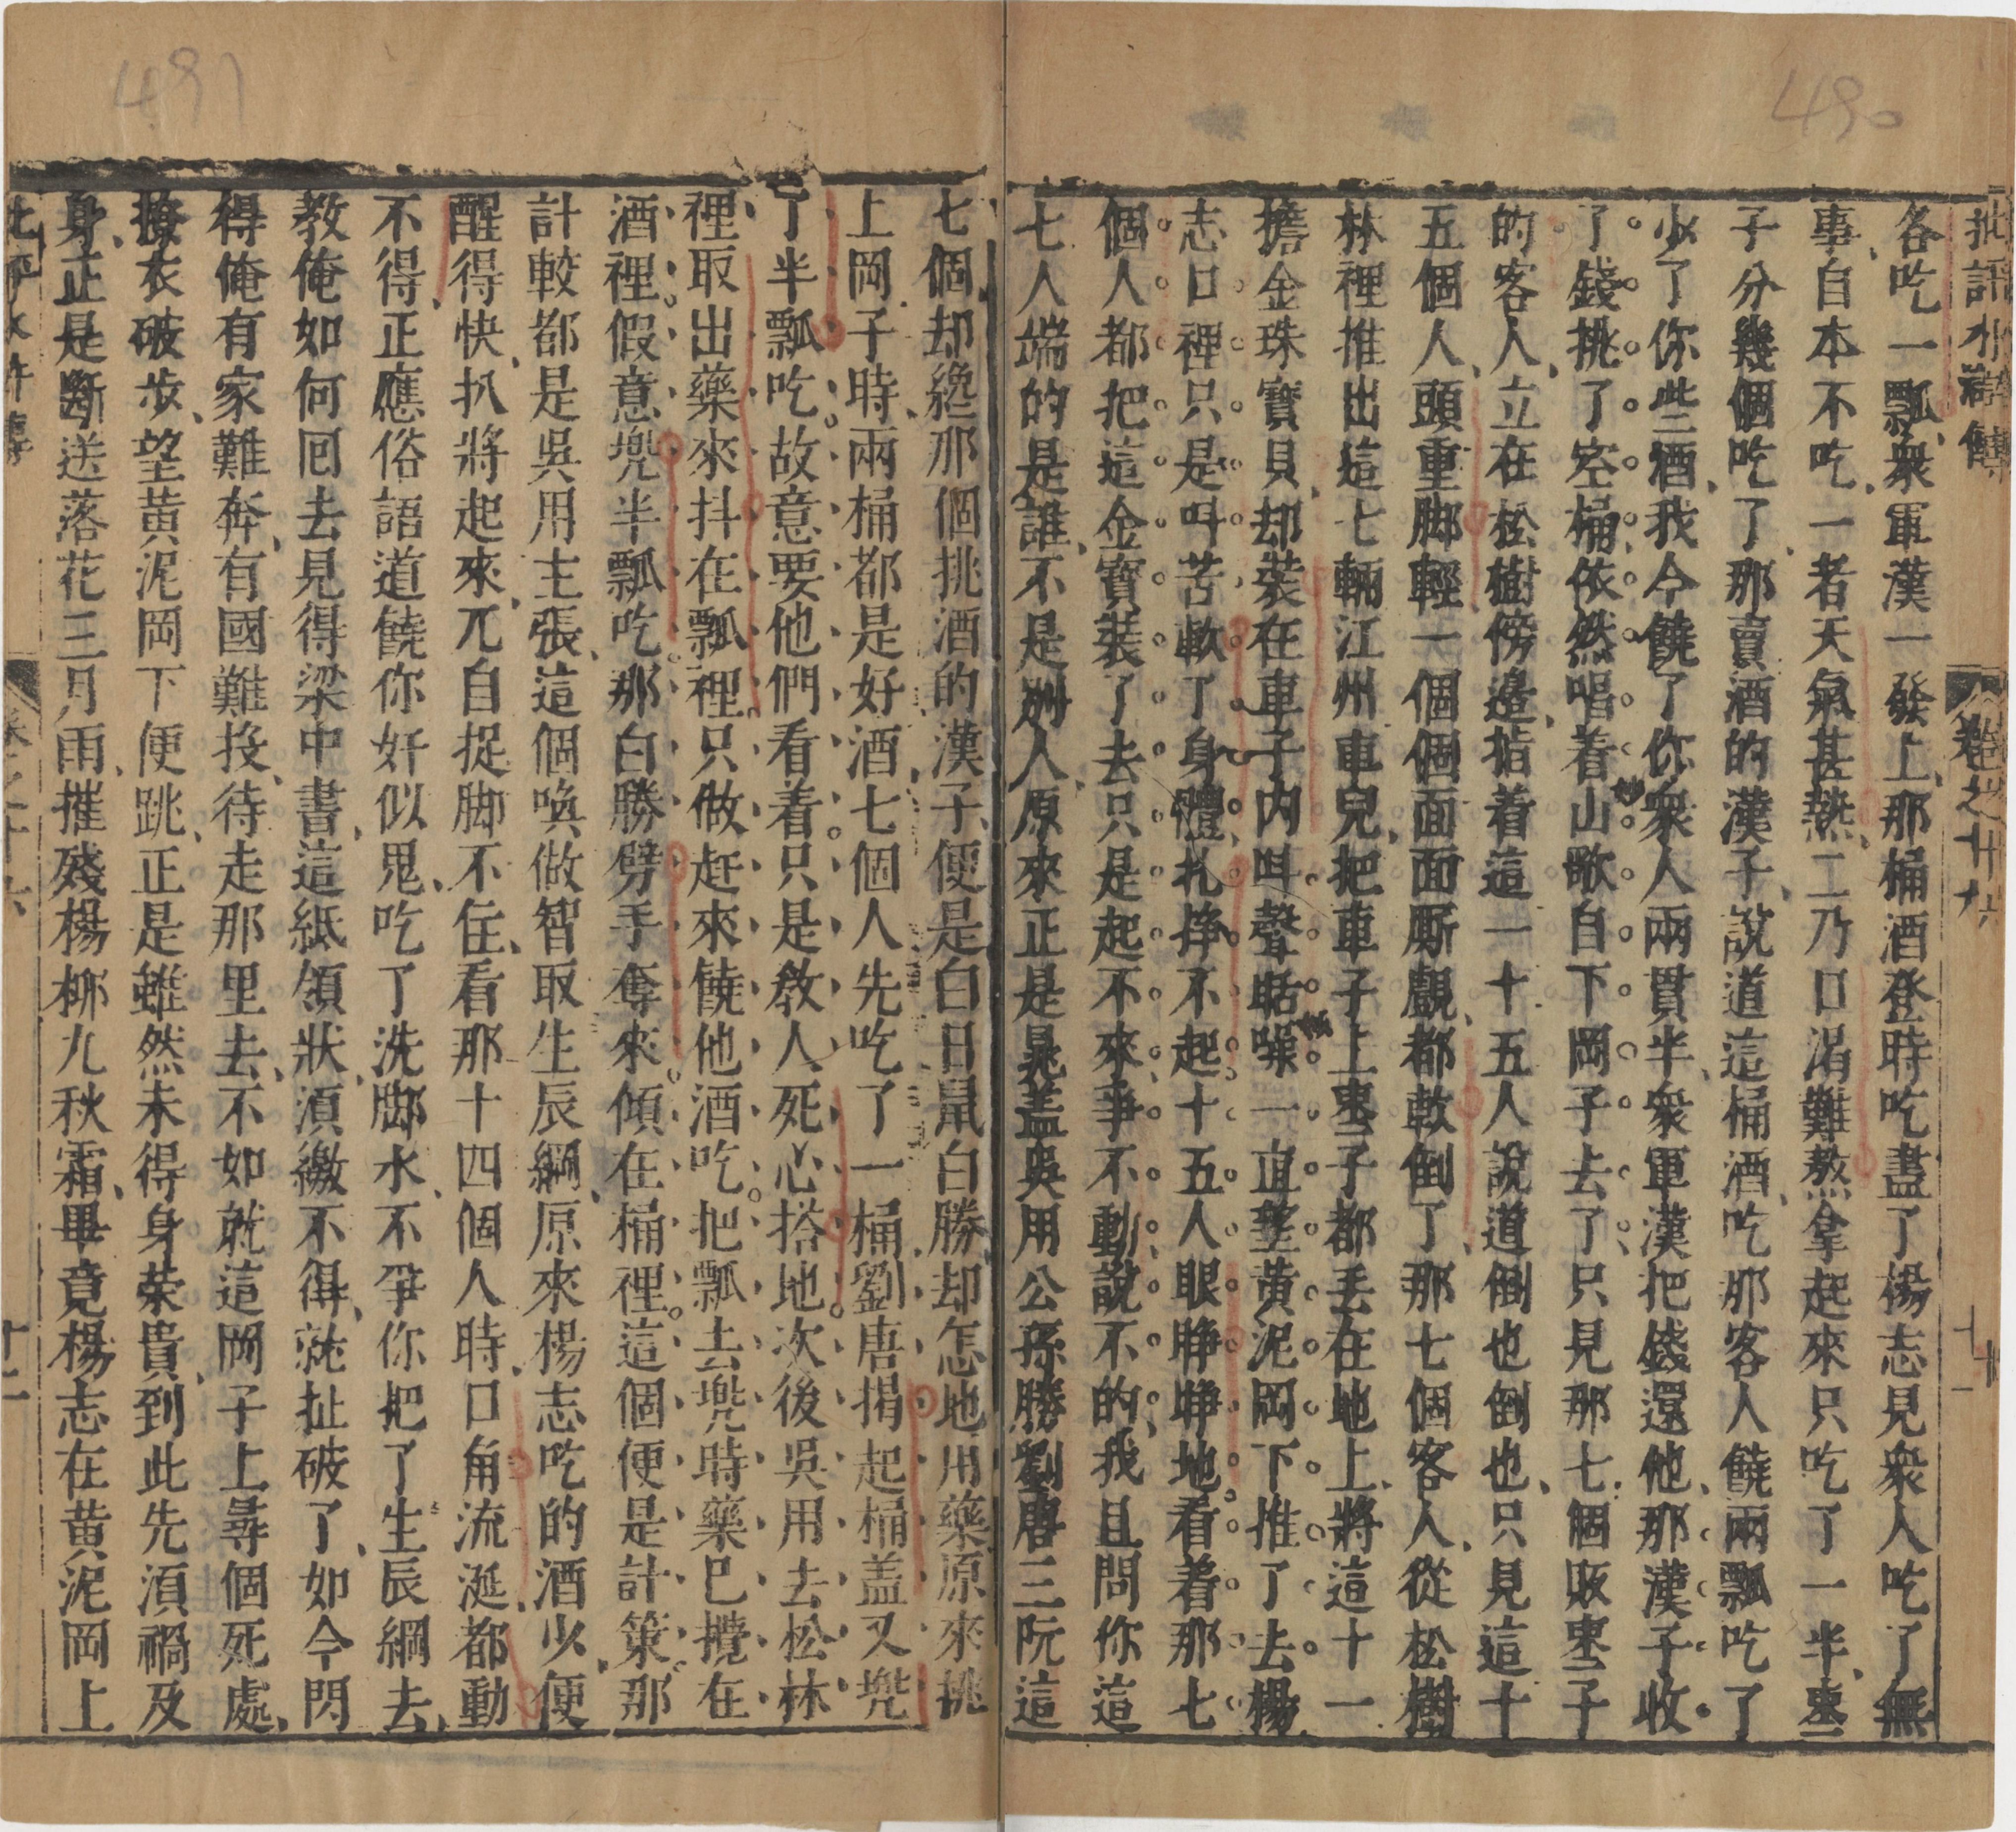 490
批評水滸傳
卷之十六
十一
各吃一瓢衆軍漢一發上那桶酒登時吃盡了楊志見衆人吃了無
事自本不吃一者天氣甚熱二乃口渴難熬拿起來只吃了一半棗
子分幾個吃了那賣酒的漢子說道這桶酒吃那客人饒兩瓢吃了
少了你些酒我今饒了你衆人兩貫半衆軍漢把錢還他那漢子收
了錢挑了空桶依然唱着山歌自下岡子去了只見那七個販棗子
的客人立在松樹傍邊指着這一十五人說道倒也倒也只見這十
五個人頭重脚輕一個個面面厮覷都軟倒了那七個客人從松樹
林裡推出這七輛江州車兒把車子上棗子都丢在地上將這十一
擔金珠寶貝却裝在車子內叫聲聒噪一直望黃泥岡下推了去楊
志口裡只是叫苦軟了身體扎掙不起十五人眼睜睜地看着那七
個人都把這金寶裝了去只是起不來爭不動說不的我且問你這
七人端的是誰不是别人原來正是晁盖吳用公孫勝劉唐三阮這
491
七個却纔那個挑酒的漢子便是白日鼠白勝却怎地用藥原來挑
上岡子時兩桶都是好酒七個人先吃了一桶劉唐揭起桶盖又兠
了半瓢吃故意要他們看着只是教人死心搭地次後吳用去松林
裡取出藥來抖在瓢裡只做赶來饒他酒吃把瓢去兠時藥已攪在
酒裡假意兠半瓢吃那白勝劈手奪來傾在桶裡這個便是計策那
計較都是吳用主張這個喚做智取生辰綱原來楊志吃的酒少便
醒得快扒將起來兀自捉脚不住看那十四個人時口角流涎都動
不得正應俗語道饒你奸似鬼吃了洗脚水不爭你把了生辰綱去
教俺如何囘去見得梁中書這紙領狀湏繳不得就扯破了如今閃
得俺有家難奔有國難投待走那里去不如就這岡子上尋個死處
撩衣破步望黄泥岡下便跳正是雖然未得身荣貴到此先湏禍及
身正是斷送落花三月雨摧殘楊柳九秋霜畢竟楊志在黄泥岡上
十二